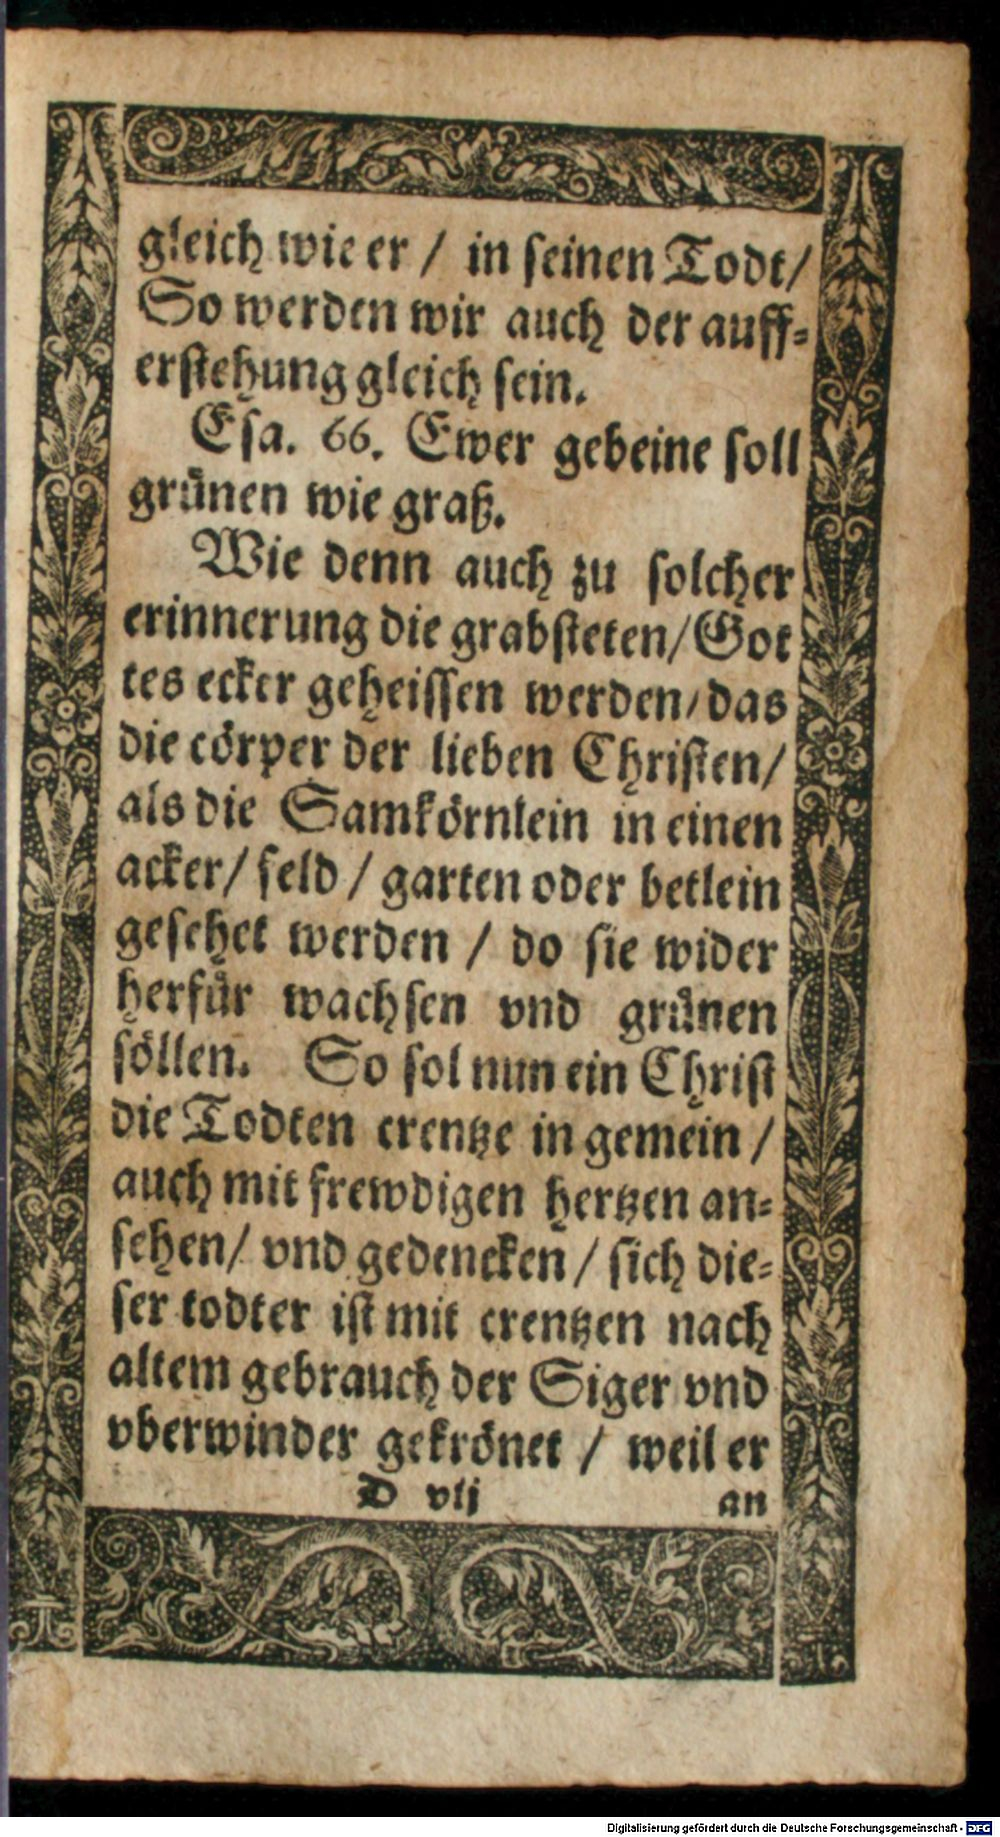 gleich wie er / in seinen Todt/
So werden wir auch der auff-
erstehung gleich sein.
Esa. 66. Ewer gebeine soll
grünen wie graß.
Wie denn auch zu solcher
erinnerung die grabsteten/Got
tes ecker geheissen werden/das
die cörper der lieben Christen/
als die Samkörnlein in einen
acker/ feld / garten oder betlein
gesehet werden / do sie wider
herfür wachsen vnd grünen
söllen. So sol nun ein Christ
die Todten crentze in gemein /
auch mit frewdigen hertzen an-
sehen/ vnd gedencken / sich die-
ser todter ist mit crentzen nach
altem gebrauch der Siger vnd
vberwinder gekrönet / weil er
D vij an
Digitalisierung gefördert durch die Deutsche Forschungsgemeinschaft - DFG